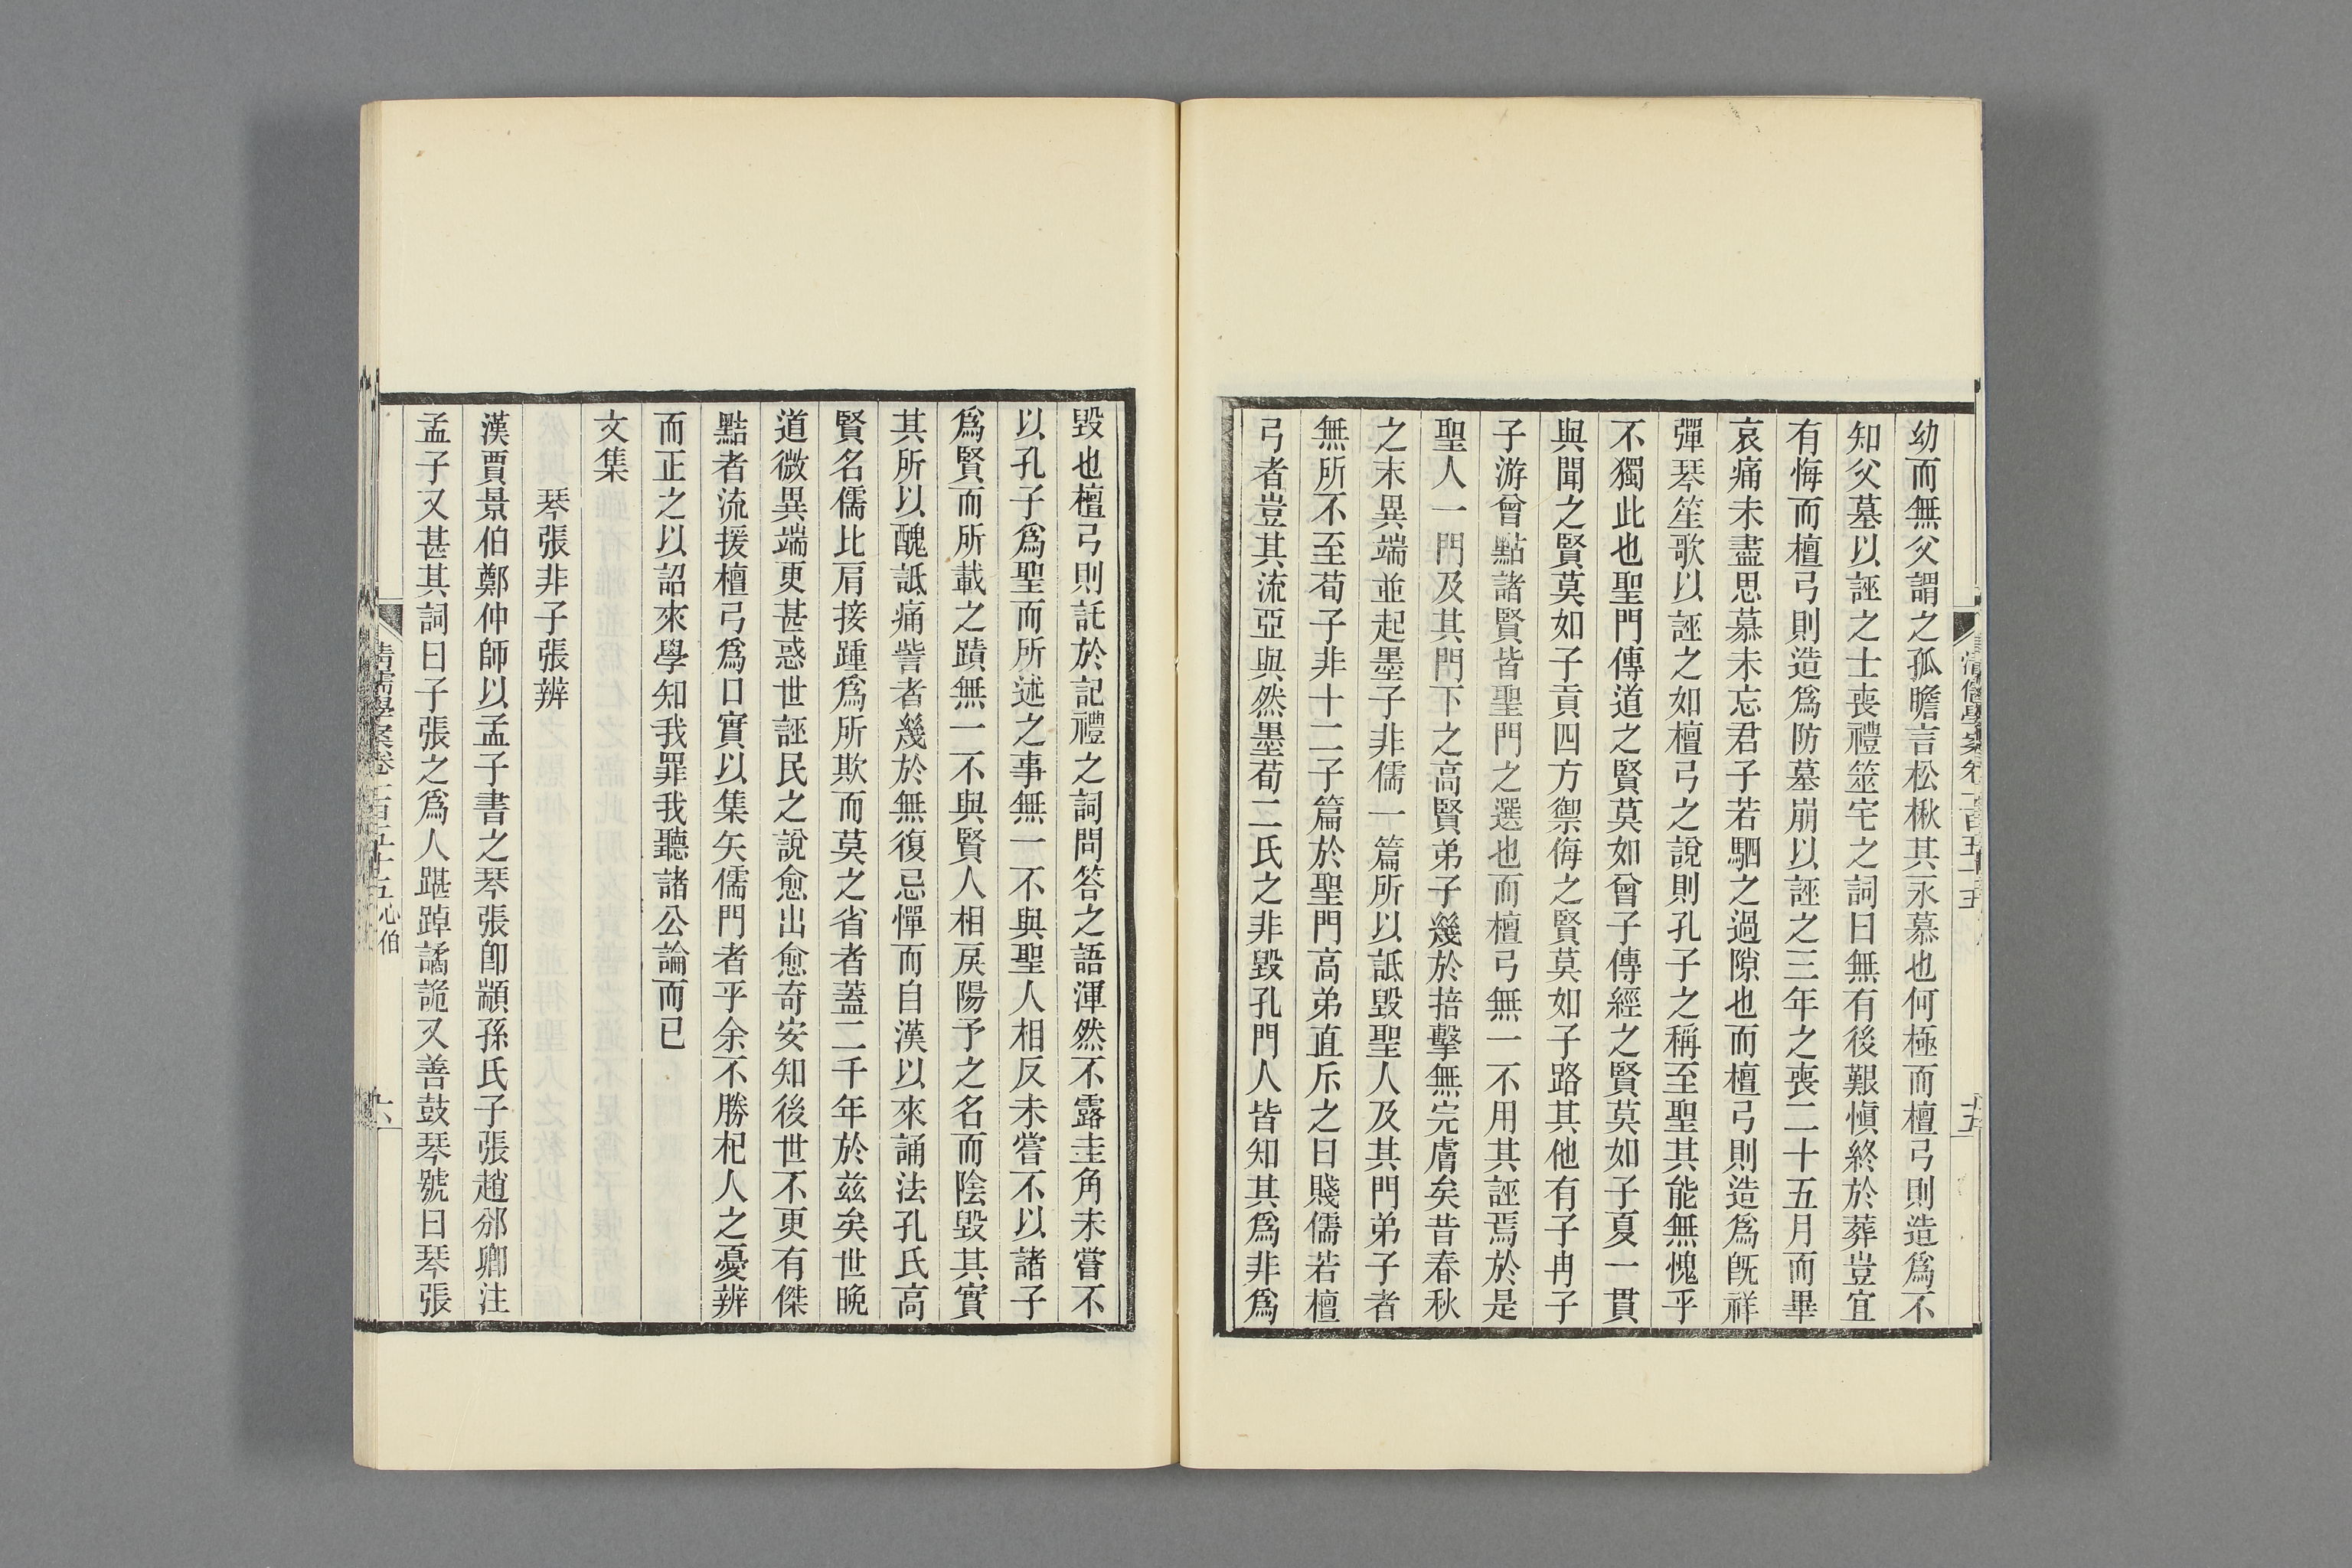 幼而無父謂之孤瞻言松楸其永慕也何極而檀弓則造爲不
知父墓以誣之士喪禮筮宅之詞曰無有後艱愼終於葬豈宜
有悔而檀弓則造爲防墓崩以誣之三年之喪二十五月而畢
哀痛未盡思慕未忘君子若駟之過隙也而檀弓則造爲旣祥
彈琴笙歌以誣之如檀弓之說則孔子之稱至聖其能無愧乎
不獨此也聖門傳道之賢莫如曾子傳經之賢莫如子夏一貫
與聞之賢莫如子貢四方禦侮之賢莫如子路其他有子冉子
子游曾點諸賢皆聖門之選也而檀弓無一不用其誣焉於是
聖人一門及其門下之高賢弟子幾於掊擊無完膚矣昔春秋
之末異端並起墨子非儒一篇所以詆毀聖人及其門弟子者
無所不至荀子非十二子篇於聖門高弟直斥之曰賤儒若檀
弓者豈其流亞與然墨荀二氏之非毀孔門人皆知其爲非爲
毀也檀弓則託於記禮之詞問答之語渾然不露圭角未嘗不
以孔子爲聖而所述之事無一不與聖人相反未嘗不以諸子
爲賢而所載之蹟無一不與賢人相戾陽予之名而陰毀其實
其所以醜詆痛訾者幾於無復忌憚而自漢以來誦法孔氏高
賢名儒比肩接踵爲所欺而莫之省者蓋二千年於兹矣世晚
道微異端更甚惑世誣民之說愈出愈奇安知後世不更有傑
黠者流援檀弓爲口實以集矢儒門者乎余不勝杞人之憂辨
而正之以詔來學知我罪我聽諸公論而已
文集
琴張非子張辨
漢賈景伯鄭仲師以孟子書之琴張卽顓孫氏子張趙邠卿注
孟子又甚其詞曰子張之爲人踸踔譎詭又善鼓琴號曰琴張
清儒學案卷一百五十五心伯
六